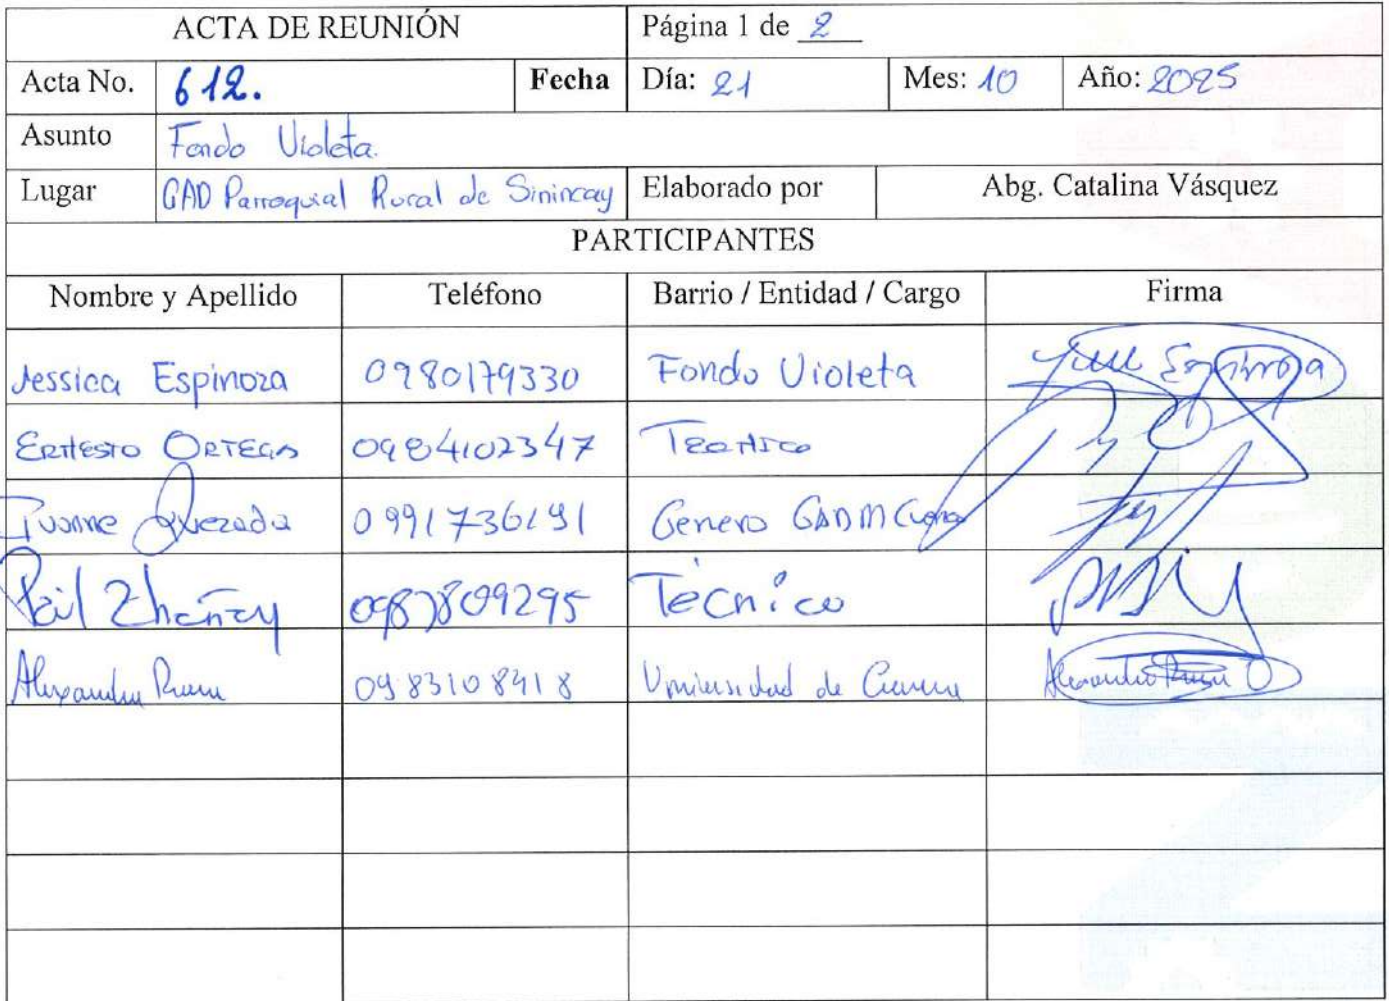 ACTA DE REUNIÓN Página 1 de 2
Acta No. 612. Fecha Día: 21 Mes: 10 Año: 2025
Asunto Fondo Violeta.
Lugar GAD Parroquial Rural de Sinincay Elaborado por Abg. Catalina Vásquez
PARTICIPANTES
Nombre y Apellido Teléfono Barrio / Entidad / Cargo Firma
Jessica Espinoza 0980179330 Fondo Violeta
Ernesto Ortega 0984102347 Tecnico
Ivonne Quezada 0991736191 Genero GADM Cuenca
Zhañay 0987809295 Tecnico
0983108418 Universidad de Cuenca